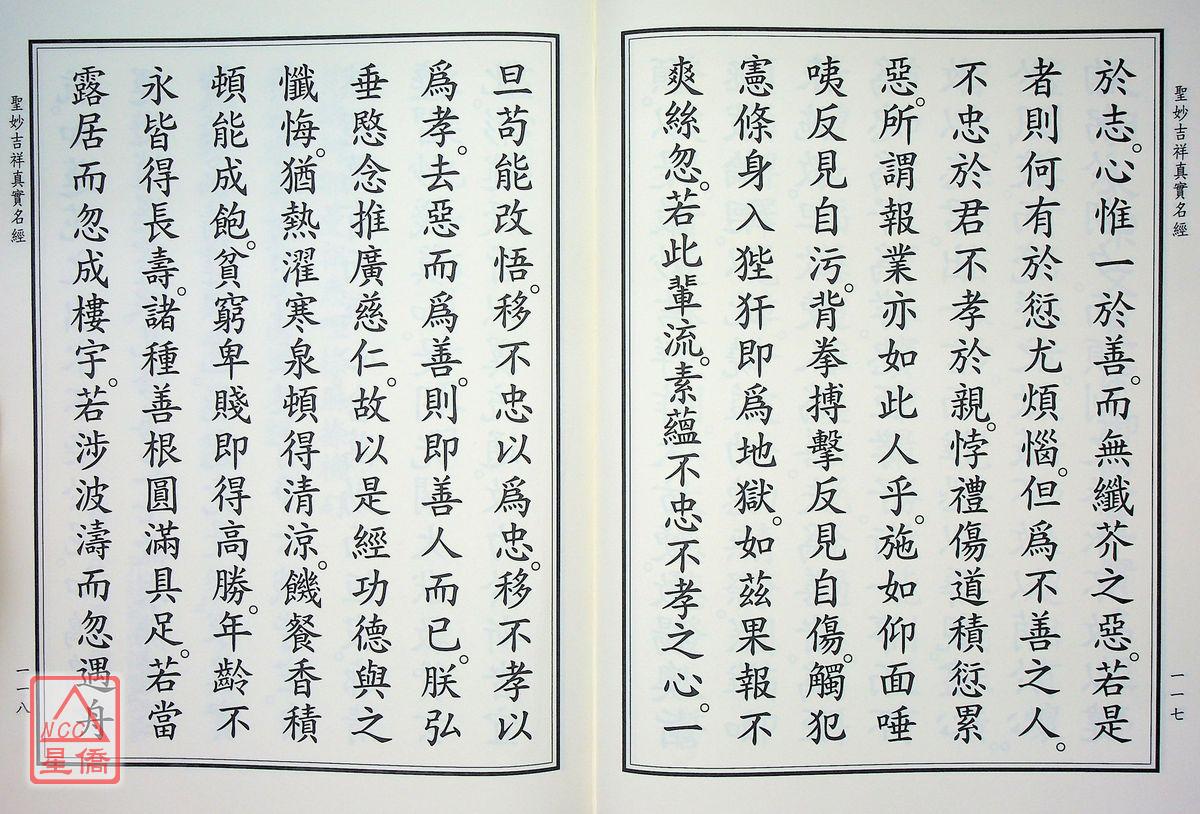 聖妙吉祥真實名經
於志。心惟一於善。而無纖芥之惡。若是
者則何有於愆尤煩惱。但爲不善之人。
不忠於君不孝於親。悖禮傷道積愆累
惡。所謂報業亦如此人乎。施如仰面唾
咦反見自污。背拳搏擊反見自傷。觸犯
憲條身入狴犴即爲地獄。如茲果報不
爽絲忽。若此輩流。素蘊不忠不孝之心。一
一一七
旦苟能改悟。移不忠以爲忠。移不孝以
爲孝。去惡而爲善。則即善人而已。朕弘
垂愍念推廣慈仁。故以是經功德與之
懺悔。猶熱濯寒泉頓得清涼。饑餐香積
頓能成飽。貧窮卑賤即得高勝。年齡不
永皆得長壽。諸種善根圓滿具足。若當
露居而忽成樓宇。若涉波濤而忽遇舟
聖妙吉祥真實名經
一一八
NCC
星僑